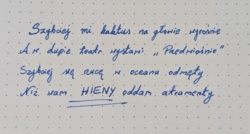 Szybciej mi kaktus na głowie wyrośnie
A w dupie teatr wystawi „Przedwiośnie”
Szybciej się rzucę w oceanu odmęty
Niż wam HIENY oddam atramenty